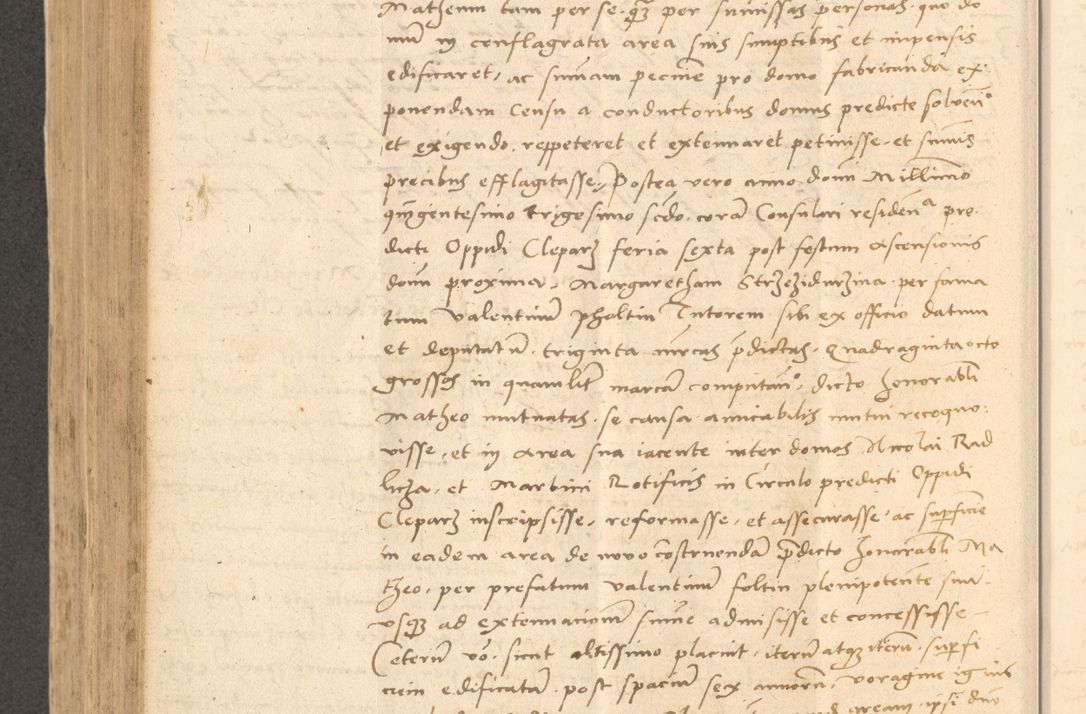 Matheum tam per se qz per sumissas personas quo do
mū in conflagrata area suis sumptibus et impensis
edificaret, ac sumam pecunie pro domo fabricanda ex
ponendam Censu a conductoribus domus predicte solven
et exigendo, reppeteret et extenuaret petiuisse, et sumis
precibus efflagitasse, Postea vero anno domi Millimo
quigentesimo trigesimo scdo, corā Consulari residena pre
dicti Oppidi Cleparz feria sexta post festum Ascensionis
domi proxima, Margaretham Strzezidurzina per fama
tum Valentinū Pholtin Tutorem sibi ex officio datum
et deputatū, triginta mrcas pdictas, Quadraginta octo
grossos in quamlit marcā computan, dicto honorabli
Matheo mutuatas, se causa amicabilis mutui recogno
visse, et in area sua iacente inter domos Nicolai Rad
licza, et Martini Rotificis in Circulo predicti Oppidi
Cleparz inscripsisse, reformasse, et assecurasse, ac supficie
in eadem area de novo costruendā pdicto honorabli Ma
theo, per prefatum Valentinū foltin plenipotente suū
usqz ad extenuationū sume admisisse et concessisse
Ceterū vo, sicut altissimo placuit, iterū atqz iterū supfi
ciem edificatā post spaciū sex annorū, voragine ignis
aream ipsi duo